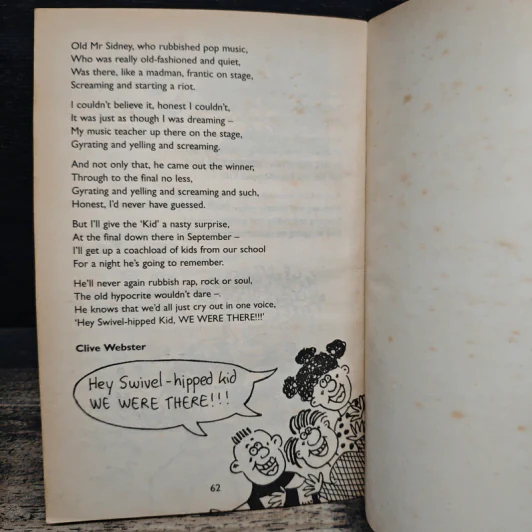 Old Mr Sidney, who rubbished pop music,
Who was really old-fashioned and quiet,
Was there, like a madman, frantic on stage,
Screaming and starting a riot.
I couldn't believe it, honest I couldn't,
It was just as though I was dreaming –
My music teacher up there on the stage,
Gyrating and yelling and screaming.
And not only that, he came out the winner,
Through to the final no less,
Gyrating and yelling and screaming and such,
Honest, I'd never have guessed.
But I'll give the 'Kid' a nasty surprise,
At the final down there in September –
I'll get up a coachload of kids from our school
For a night he's going to remember.
He'll never again rubbish rap, rock or soul,
The old hypocrite wouldn't dare –
He knows that we'd all just cry out in one voice,
'Hey Swivel-hipped Kid, WE WERE THERE!!!'
Clive Webster
Hey Swivel-hipped kid
WE WERE THERE!!!
62